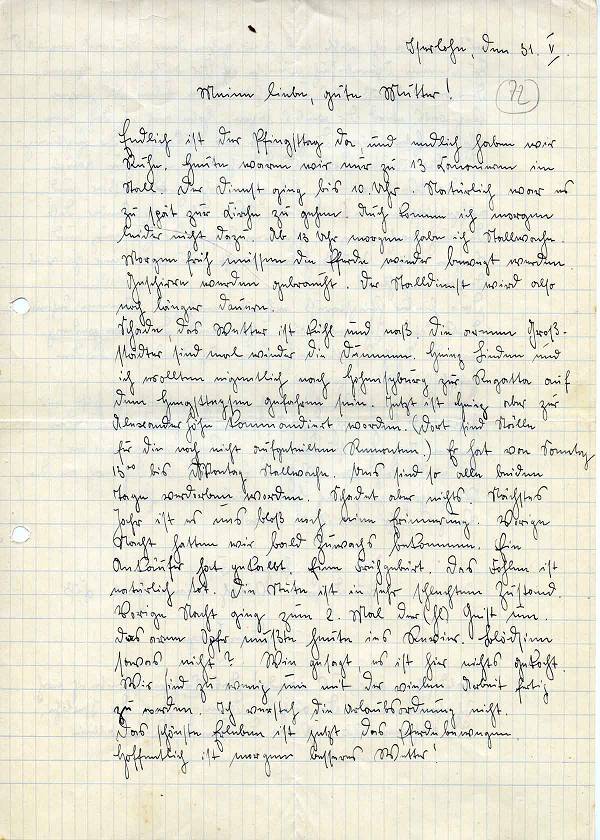 Iserlohn, den 31. V.
72
Meine liebe, gute Mutter!
Endlich ist der Pfingsttag da, und endlich haben wir
Ruhe. Heute waren wir nur zu 13 Kanonieren im
Stall. Der Dienst ging bis 10 Uhr. Natürlich war es
zu spät zur Kirche zu gehen. Auch komme ich morgen
leider nicht dazu. Ab 13 Uhr morgen habe ich Stallwache.
Morgen früh müssen die Pferde wieder bewegt werden
Geschirre werden gebraucht. Der Stalldienst wird also
noch länger dauern.
Schade, das Wetter ist kühl und naß. Die armen Groß-
städter sind mal wieder die Dummen. Heinz Linden und
ich wollten eigentlich nach Hohensyburg zur Regatta auf
dem Hengsteysee gefahren sein. Jetzt ist Heinz aber zur
Alexanderhöhe kommandiert worden. (dort sind Ställe
für die noch nicht aufgeteilten Remonten.) Er hat von Sonntag
13⁰⁰ bis Montag Stallwache. Uns sind so alle beiden
Tage verdorben worden. Schadet aber nichts. Nächstes
Jahr ist es uns bloß noch eine Erinnerung. Vorige
Nacht hätten wir bald Zuwachs bekommen. Ein
Ankäufer hat gekalbt. Eine Frühgeburt. Das Fohlen ist
natürlich tot. Die Stute ist in sehr schlechtem Zustand.
Vorige Nacht ging zum 2. Mal der (hl) Geist um.
Das arme Opfer mußte heute ins Revier. Blödsinn
sowas nicht? Wie gesagt, es ist hier nichts
Wir sind zu wenig um mit der vielen Arbeit fertig
zu werden. Ich versteh die Urlaubsordnung nicht.
Das schönste Erleben ist jetzt das Pferdebewegen.
Hoffentlich ist morgen besseres Wetter!